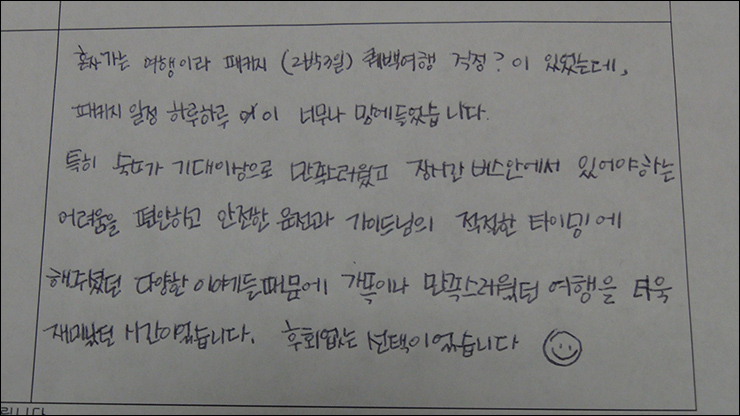 혼자가는 여행이라 패키지 (2박3일) 퀘백여행 걱정?이 있었는데,
패키지 일정 하루하루 이 너무나 맘에들었습니다.
특히 숙소가 기대이상으로 만족스러웠고 장시간 버스안에서 있어야하는
어려움을 편안하고 안전한 운전과 가이드님의 적절한 타이밍에
해주셨던 다양한 이야기들때문에 가뜩이나 만족스러웠던 여행을 더욱
재미났던 시간이었습니다. 후회없는 선택이었습니다
립니다